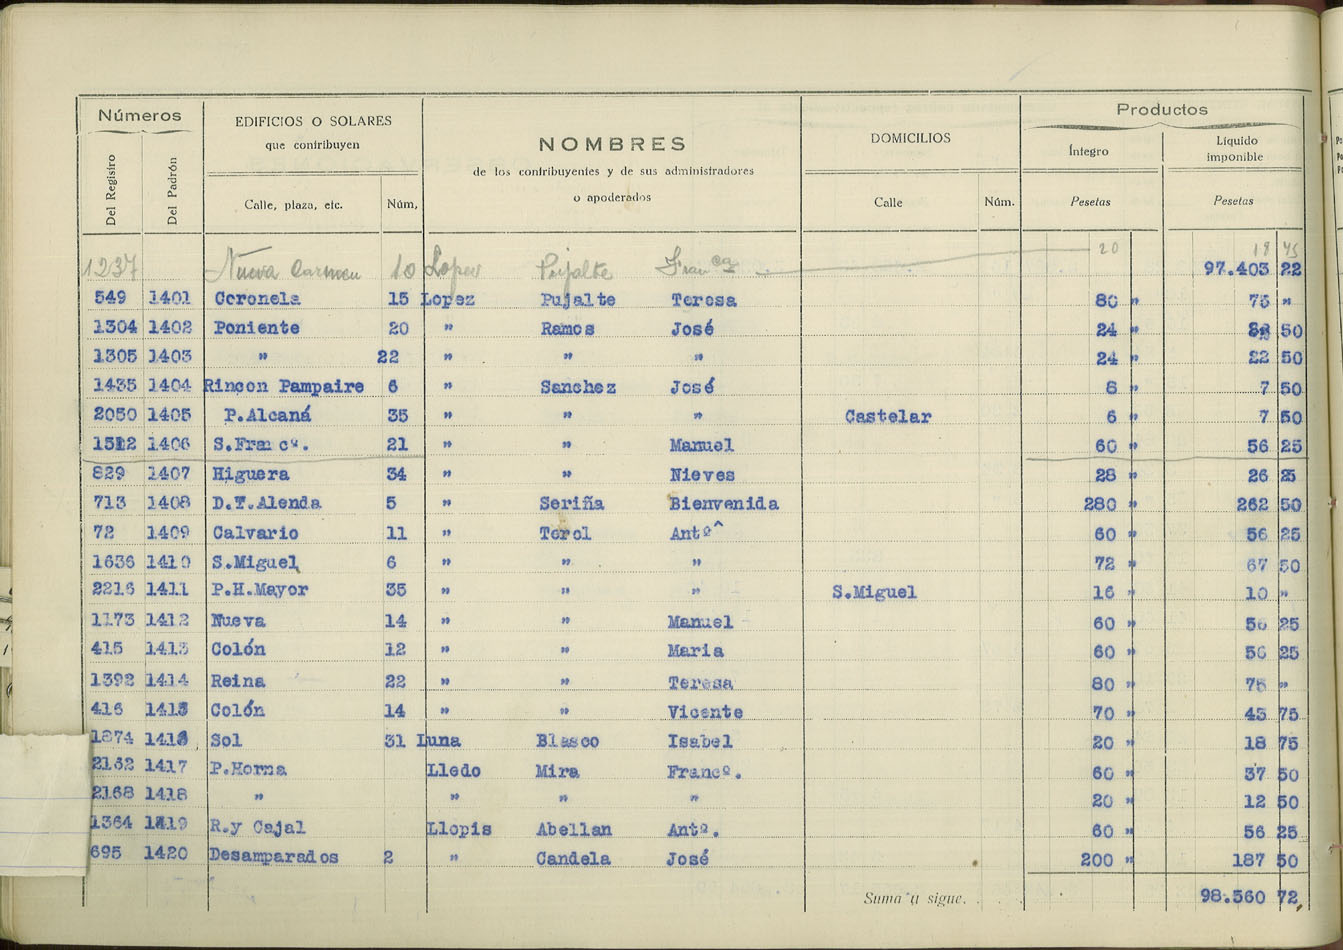 Números EDIFICIOS O SOLARES que contribuyen NOMBRES de los contribuyentes y de sus administradores o apoderados DOMICILIOS Productos
Del Registro Del Padrón Calle, plaza, etc. Núm, Calle Núm. Íntegro Pesetas Líquido imponible Pesetas
1237 Nueva Carmen 10 Lopez Pujalte Franca 20 18 75
97.403 22
549 1401 Coronela 15 Lopez Pujalte Teresa 80 " 75 "
1304 1402 Poniente 20 " Ramos José 24 " 50
1305 1403 " 22 " " " 24 " 22 50
1435 1404 Rincon Pampaire 6 " Sanchez José 8 " 7 50
2050 1405 P.Alcaná 35 " " " Castelar 6 " 7 50
1512 1406 S.Francº. 21 " " Manuel 60 " 56 25
829 1407 Higuera 34 " " Nieves 28 " 26 25
713 1408 D.T.Alenda 5 " Seriña Bienvenida 280 " 262 50
72 1409 Calvario 11 " Terol Antº^ 60 " 56 25
1636 1410 S.Miguel 6 " " " 72 " 67 50
2216 1411 P.H.Mayor 35 " " " S.Miguel 16 " 10 "
1173 1412 Nueva 14 " " Manuel 60 " 56 25
415 1413 Colón 12 " " Maria 60 " 56 25
1392 1414 Reina 22 " " Teresa 80 " 75 "
416 1415 Colón 14 " " Vicente 70 " 45 75
1874 1416 Sol 31 Luna Blasco Isabel 20 " 18 75
2162 1417 P.Horna Lledo Mira Francº. 60 " 37 50
2168 1418 " " " " 20 " 12 50
1364 1419 R.y Cajal Llopis Abellan Antº. 60 " 56 25
695 1420 Desamparados 2 " Candela José 200 " 187 50
Suma y sigue. 98.560 72